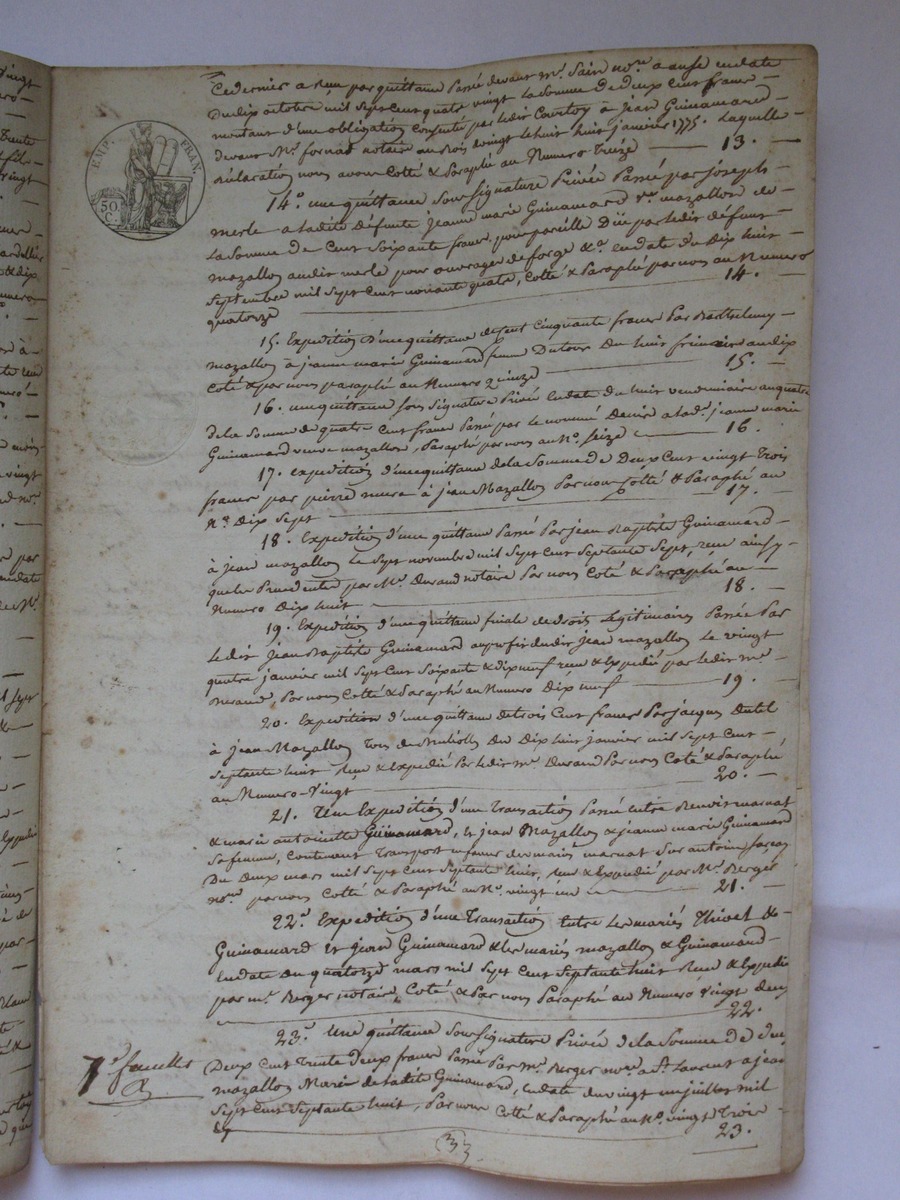 EMP. FRAN.
50 C.
Ce dernier a reçu par quittance passé devant Me. Sain nore. a anse en date
Du dix octobre mil Sept Cent quatre vingt la Somme de deux cent francs
montant d'une obligation par ledit a jean Guinamard
devant Me. fornas notaire au Bois le huit janvier 1775. Laquelle
déclaration nous avons Cotté & Paraphé au Numero Treize — 13. —
14°. une quittance Sous Signature Privée Passé par joseph
merle a ladite Défunte jeanne marie Guinamard ve. mazallon de
la Somme de Cent Soixante francs, pour pareille Düe par ledit défunt
mazallon audit merle pour ouvrages de forge &a. en date du Dix huit
Septembre mil Sept Cent nonante quatre, Cotté & Paraphé par nous au Numero
quatorze — 14. —
15. Expedition d'une quittance de Cent Cinquante francs Par Barthelemy
mazallon à jeanne marie Guinamard Du huit frimaire an dix
Coté & par nous paraphé au Numero quinze — 15. —
16. une quittance Sous Signature Privée en date du huit vendemiaire an quatre
de la Somme de quatre Cent francs Passé par le nommé a lade. jeanne marie
Guinamard veuve mazallon, Paraphé par nous au No. Seize — 16.
17. expedition d'une quittance de la Somme de Deux Cent vingt Trois
francs par pierre a jean Mazallon Par nous Cotté & Paraphé au
No. Dix Sept — 17. —
18. Expedition d'une quittance Passé Par jean Baptiste Guinamard
à jean mazallon le Sept novembre mil Sept Cent Septante Sept, reçue ainsy
que les Precedentes par Me. Durand notaire Par nous Coté & Paraphé au
Numero Dix huit — 18. —
19. Expedition d'une quittance finale de droits Legitimaires Passée Par
Le dit jean Baptiste Guinamard au profit dudit jean mazallon le vingt
quatre janvier mil Sept Cent Soixante & dix neuf reçue & Expedié par ledit Me.
Durand, Par nous Cotté & Paraphé au Numero Dix neuf — 19. —
20. Expedition d'une quittance de trois Cent francs Par jacques Dutel
à jean Mazallon Du Dix huit janvier mil Sept Cent
Septante huit Reçue & Expedié Par ledit Me. Durand Par nous Coté & Paraphé
au Numero Vingt — 20. —
21. Item Expedition d'une Transaction Passé entre Benoit marnat
& marie antoinette Guinamard, et jean Mazallon & jeanne marie Guinamard
Sa femme, Contenant Transport marnat Sur antoine
Du Deux mars mil Sept Cent Septante huit, Reçue & Expedié par Me. Berger
nore. par nous Cotté & Paraphé au No. vingt un — 21. —
22°. Expedition d'une Transaction Entre Les mariés Thivet &
Guinamard Et jean Guinamard & les mariés mazallon & Guinamard
en date du quatorze mars mil Sept Cent Septante huit Reçue & Expedié
par Me. Berger notaire, Coté & Par nous Paraphé au Numero Vingt deux
22. —
23°. Une quittance Sous Signature Privée de la Somme de
Deux Cent Trente Deux francs Passé Par Me. Berger nore. a St. Laurent a jean
mazallon Marie de ladite Guinamard, en date du vingt un juillet mil
Sept Cent Septante huit, Par nous Cotté & Paraphé au No. vingt Trois
23.
7e. feuillet